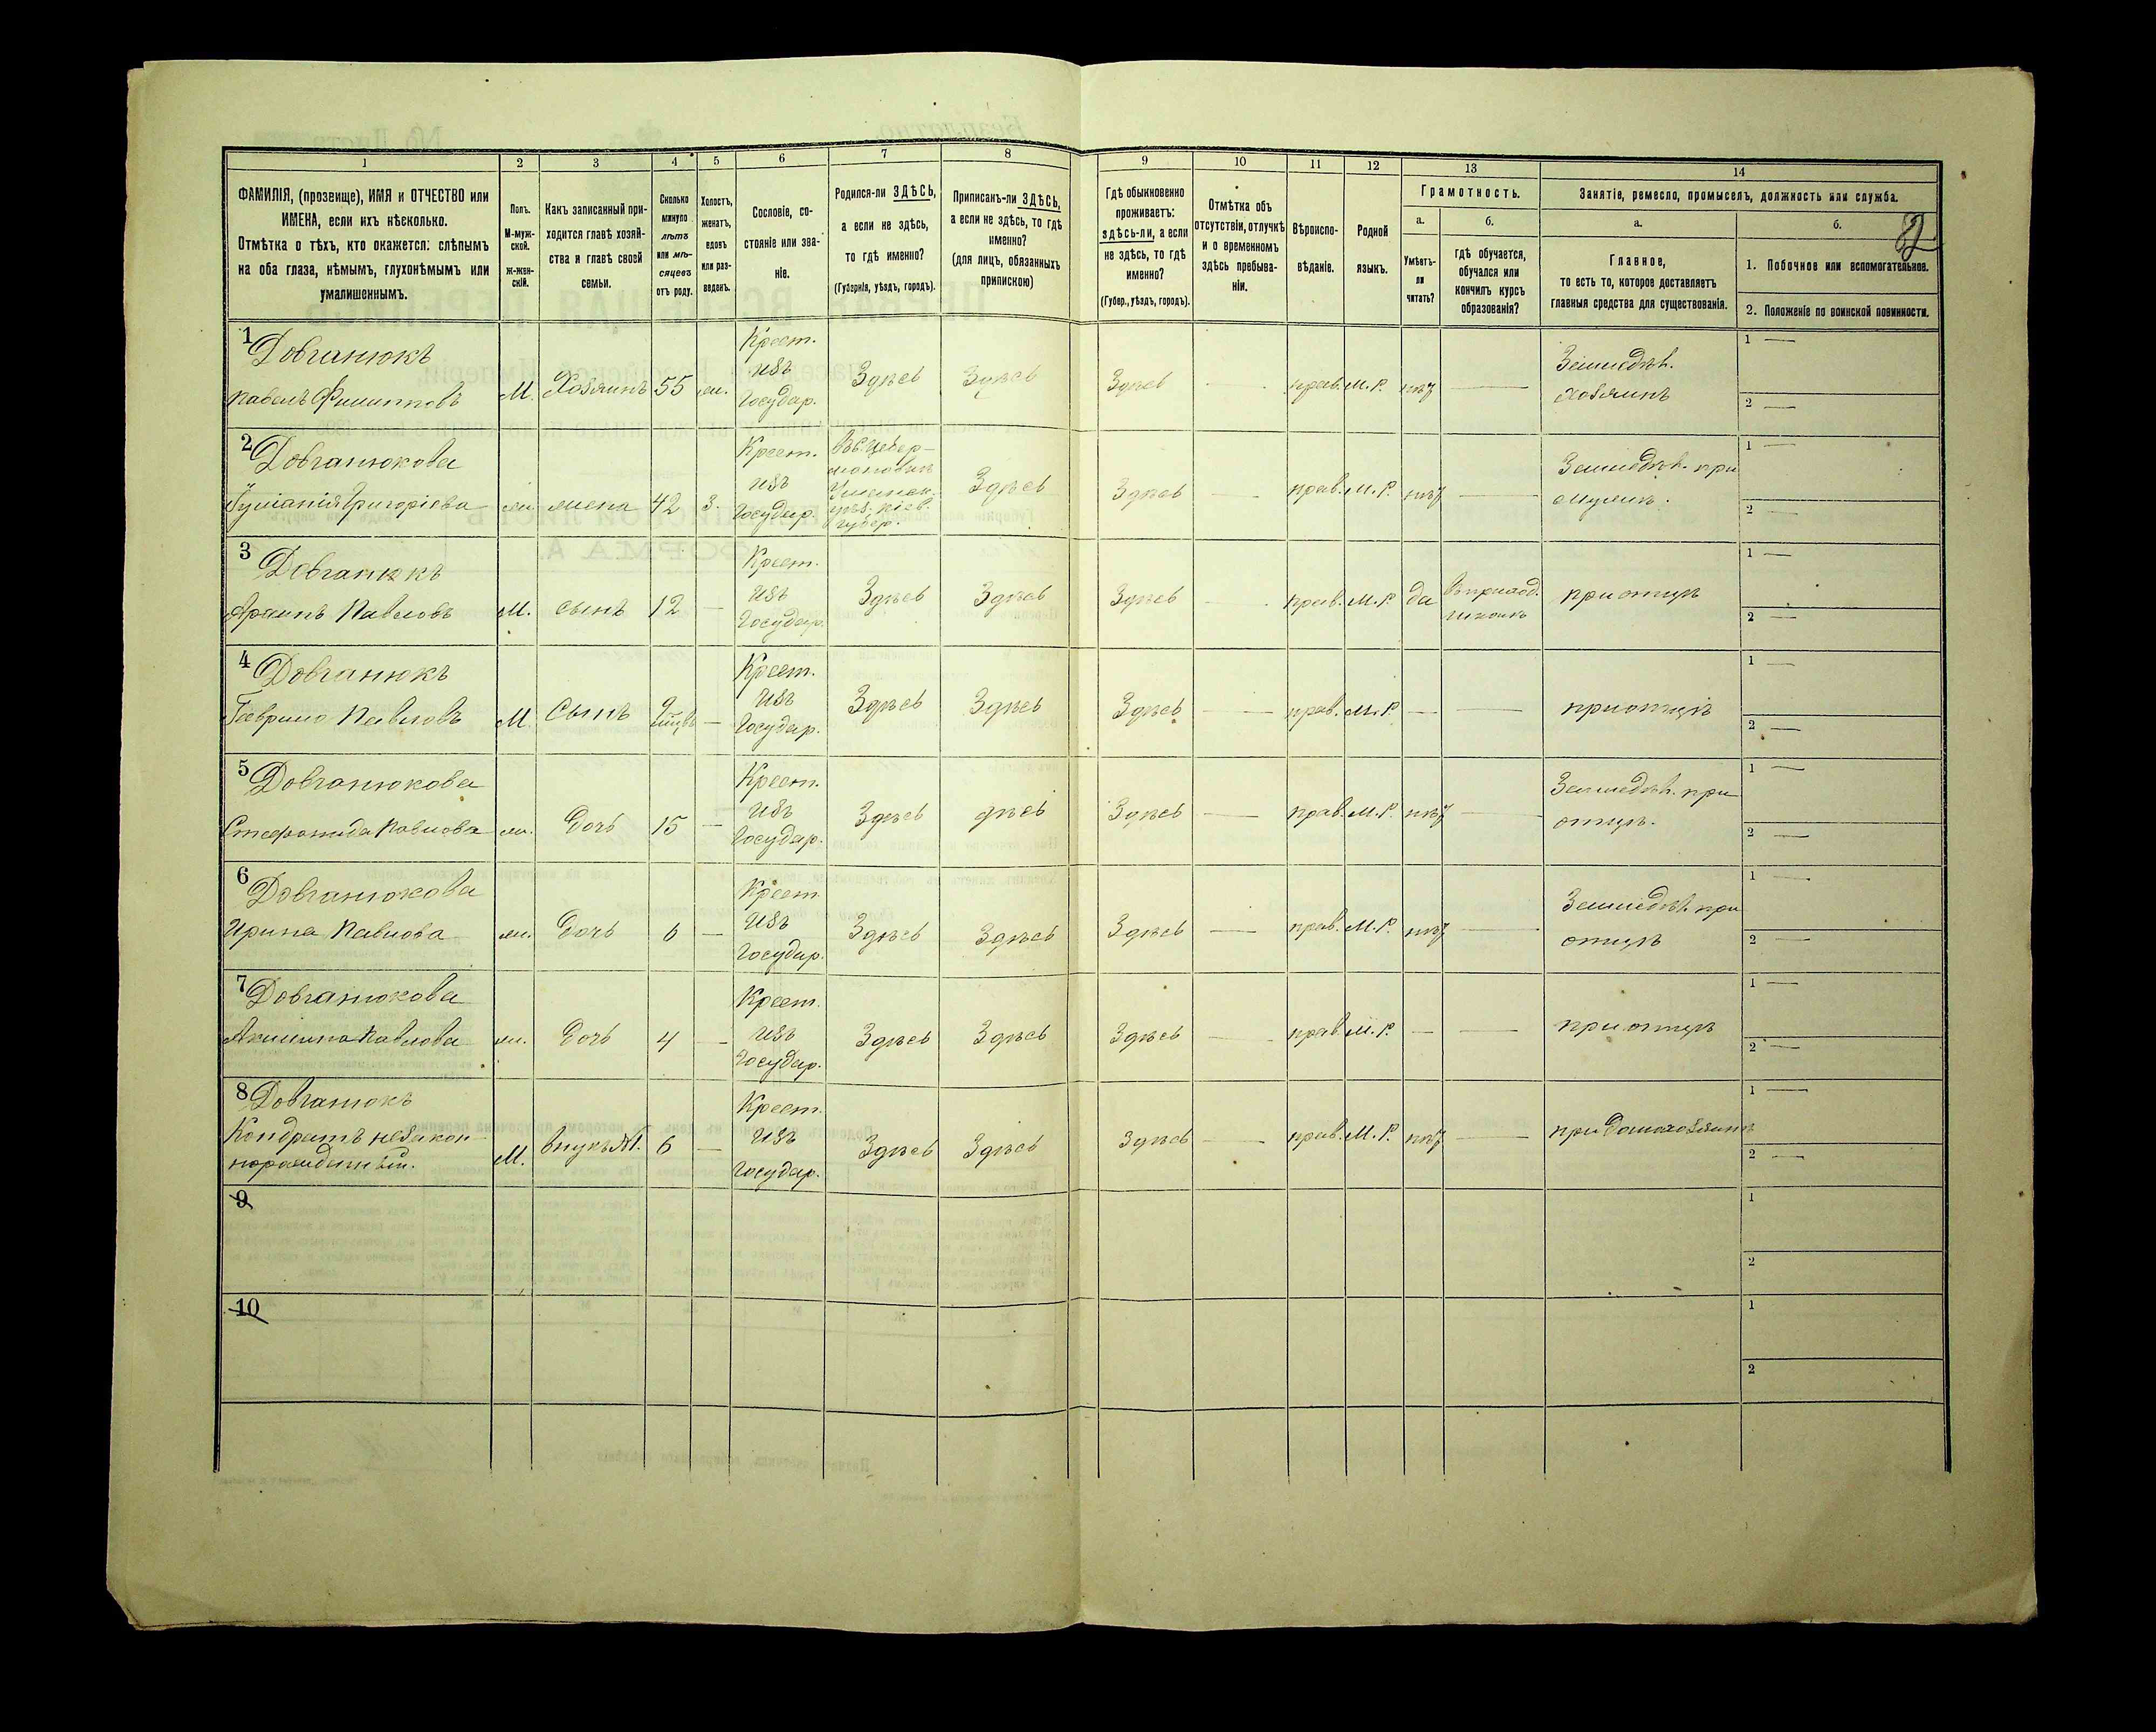 1
2
3
4
5
6
7
8
9
10
11
12
13
14
ФАМИЛІЯ, (прозвище), ИМЯ и ОТЧЕСТВО или
ИМЕНА, если ихъ нѣсколько.
Отмѣтка о тѣхъ, кто окажется: слѣпымъ
на оба глаза, нѣмымъ, глухонѣмымъ или
умалишеннымъ.
Полъ.
М-муж-
ской.
ж-жен-
скій.
Какъ записанный при-
ходится главѣ хозяй-
ства и главѣ своей
семьи.
Сколько
минуло
лѣтъ
или мѣ-
сяцевъ
отъ роду.
Холостъ,
женатъ,
вдовъ
или раз-
веденъ.
Сословіе, со-
стояніе или зва-
ніе.
Родился-ли ЗДѢСЬ,
а если не здѣсь,
то гдѣ именно?
(Губернія, уѣздъ, городъ).
Приписанъ-ли ЗДѢСЬ,
а если не здѣсь, то гдѣ
именно?
(для лицъ, обязанныхъ
припискою)
Гдѣ обыкновенно
проживаетъ:
здѣсь-ли, а если
не здѣсь, то гдѣ
именно?
(Губер., уѣздъ, городъ).
Отмѣтка объ
отсутствіи, отлучкѣ
и о временномъ
здѣсь пребыва-
ніи.
Вѣроиспо-
вѣданіе.
Родной
языкъ.
Грамотность.
а.
Умѣетъ-
ли
читать?
б.
гдѣ обучается,
обучался или
кончилъ курсъ
образованія?
Занятіе, ремесло, промыселъ, должность или служба.
а.
Главное,
то есть то, которое доставляетъ
главныя средства для существованія.
б.
1. Побочное или вспомогательное.
2. Положеніе по воинской повинности.
2
1
Довганюкъ
Павелъ Филипповъ
М.
Хозяинъ
55
ж.
Крест.
изъ
Государ.
Здѣсь
Здѣсь
Здѣсь
—
прав.
М.Р.
нѣт
—
Земледѣл.
хозяинъ
1 —
2 —
2
Довганюкова
Григоріева
ж.
жена
42
з.
Крест.
изъ
Государ.
Уманск.
уѣз. Кіев.
губер.
Здѣсь
Здѣсь
—
прав.
М.Р.
нѣт
—
Земледѣл. при
мужѣ.
1 —
2 —
3
Довганюкъ
Павловъ
М.
сынъ
12
—
Крест.
изъ
Государ.
Здѣсь
Здѣсь
Здѣсь
—
прав.
М.Р.
да
въ приход.
школѣ
при отцѣ
1 —
2 —
4
Довганюкъ
Гаврило Павловъ
М
Сынъ
9
—
Крест.
изъ
Государ.
Здѣсь
Здѣсь
Здѣсь
—
прав.
М.Р.
—
—
при отцѣ
1 —
2 —
5
Довганюкова
Стефанида Павлова
ж.
дочь
15
—
Крест.
изъ
Государ.
Здѣсь
дѣсь
Здѣсь
—
прав.
М.Р.
нѣт
—
Земледѣл. при
отцѣ.
1 —
2 —
6
Довганюкова
Ирина Павлова
ж.
дочь
6
—
Крест.
изъ
Государ.
Здѣсь
Здѣсь
Здѣсь
—
прав.
М.Р.
нѣт
—
Земледѣл. при
отцѣ
1 —
2 —
7
Довганюкова
Акилина Павлова
ж.
дочь
4
—
Крест.
изъ
Государ.
Здѣсь
Здѣсь
Здѣсь
—
прав.
М.Р.
—
—
при отцѣ
1 —
2 —
8
Довганюкъ
Кондратъ незакон-
норожденный.
М.
внукъ №1.
6
—
Крест.
изъ
Государ.
Здѣсь
Здѣсь
Здѣсь
—
прав.
М.Р.
нѣт
—
при домохозяинѣ
1 —
2 —
9
1
2
10
1
2